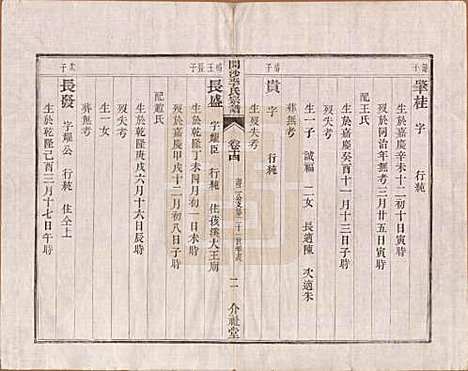 肇桂　字　行純
生於嘉慶辛未十二月初十日寅時
歿於同治年無考三月廿五日寅時
配王氏
生於嘉慶癸酉十一月初三日子時
歿失考
生一子　誠福　二女　長適陳　次適朱
葬無考
貴　字　行純
生歿失考
開沙李氏宗譜
卷古
二
介祉堂
長盛　字耀臣　行純　住孩溪大王廟
生於乾隆丁未四月初一日未時
歿於嘉慶甲戌十二月初八日子時
配趙氏
生於乾隆庚戌六月十六日辰時
歿失考
生一女
葬無考
長發　字耀公　行純　住仝上
生於乾隆己酉三月十七日午時